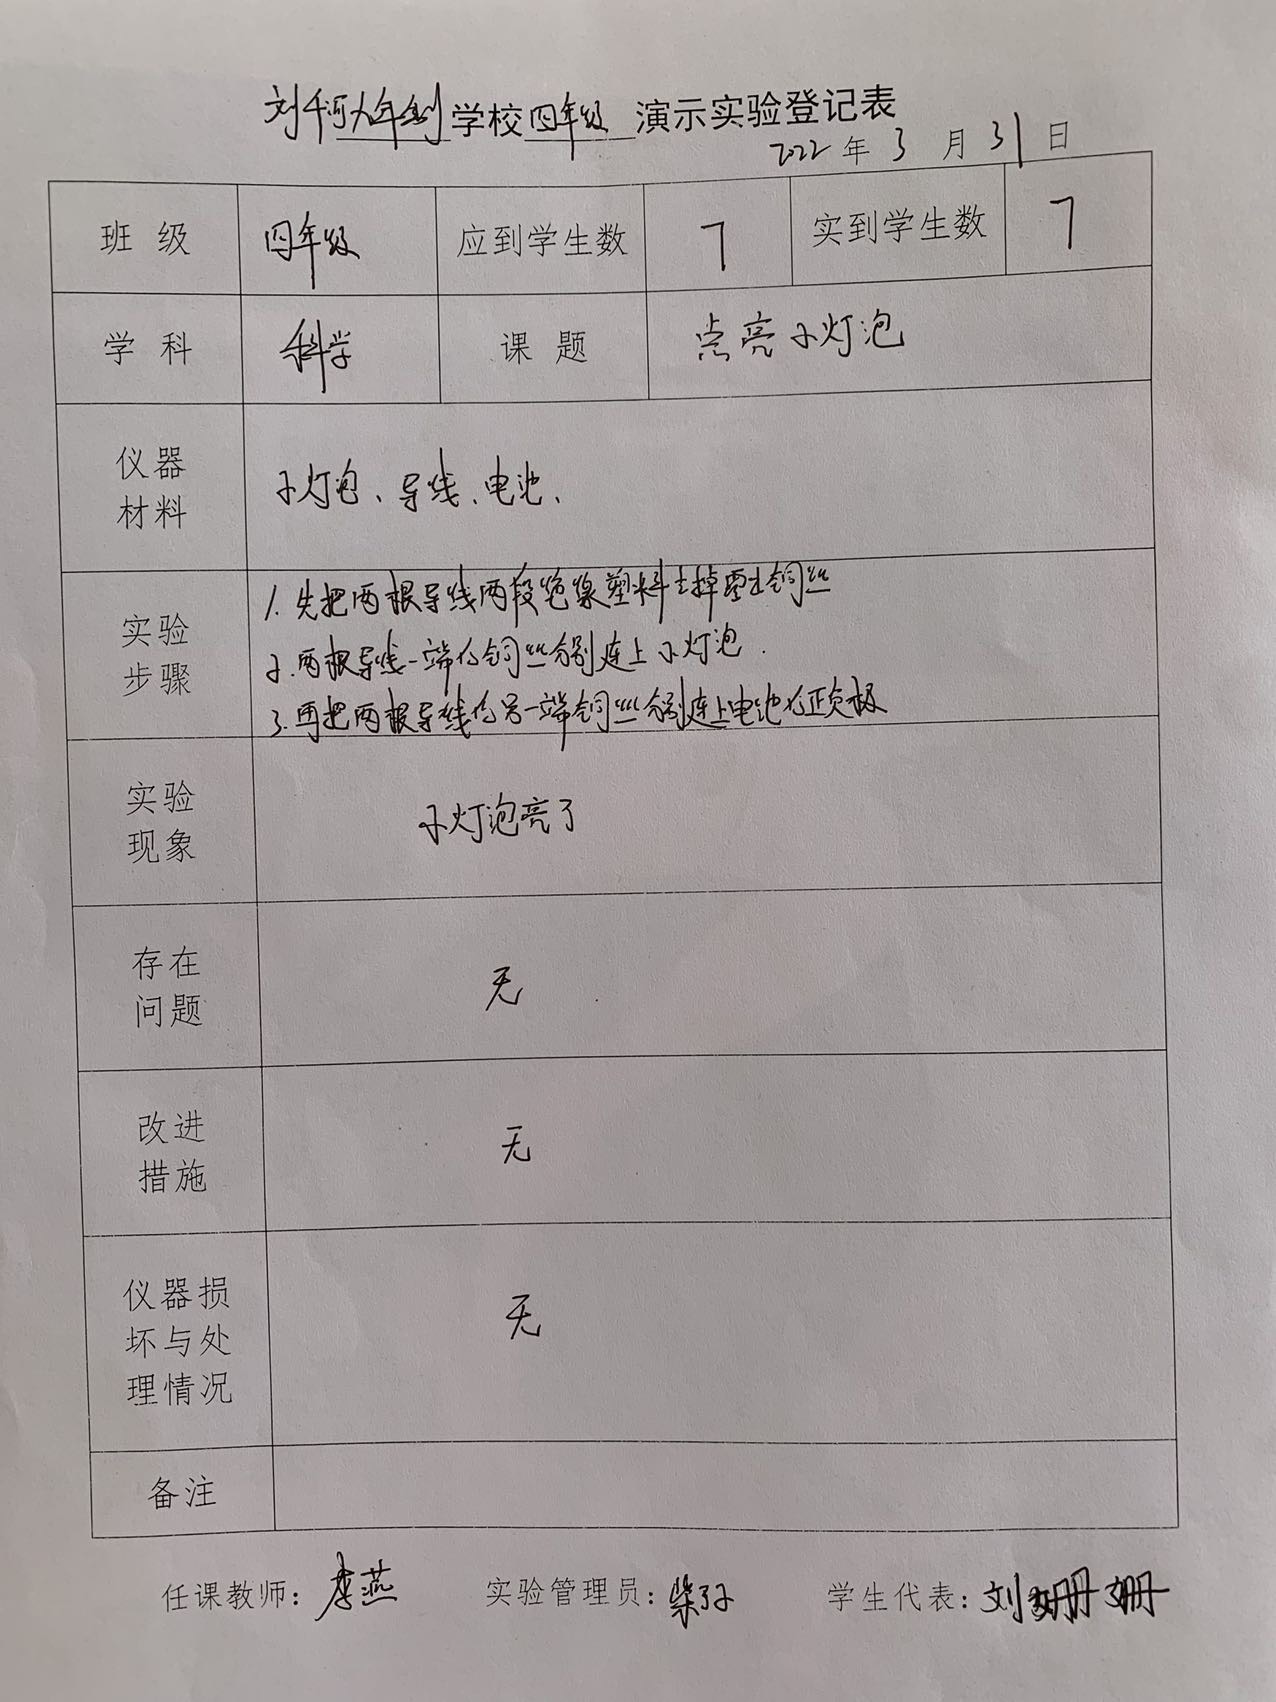 刘千河九年制学校四年级 演示实验登记表
2022 年 3 月 31 日
班 级 四年级 应到学生数 7 实到学生数 7
学 科 科学 课 题 点亮小灯泡
仪器
材料
小灯泡、导线、电池、
实验
步骤
1. 先把两根导线两段绝缘塑料去掉露出铜丝
2. 两根导线一端的铜丝分别连上小灯泡.
3. 再把两根导线的另一端铜丝分别连上电池的正负极
实验
现象
小灯泡亮了
存在
问题
无
改进
措施
无
仪器损
坏与处
理情况
无
备注
任课教师: 李燕 实验管理员: 柴 学生代表: 刘姗姗